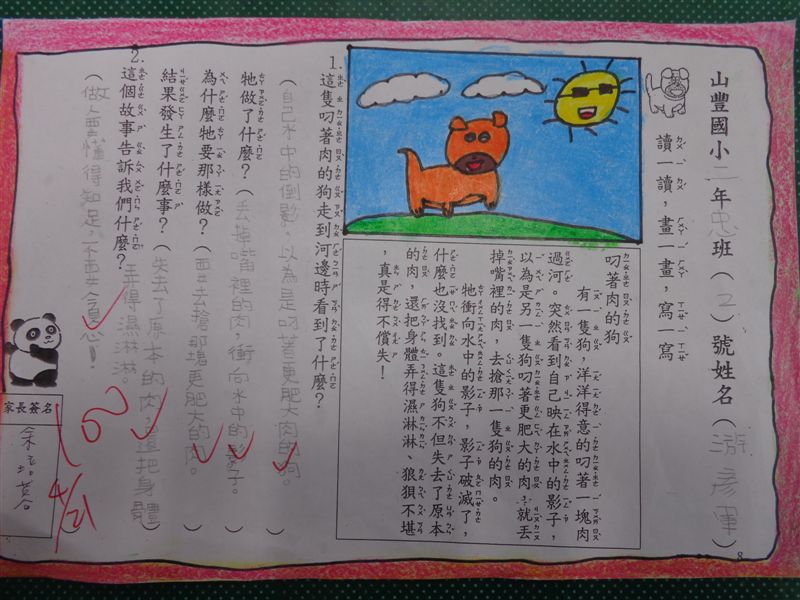 山豐國小二年忠班（2）號姓名（游彥渾）
讀一讀，畫一畫，寫一寫
叼著肉的狗
有一隻狗，洋洋得意的叼著一塊肉
過河。突然看到自己映在水中的影子，
以為是另一隻狗叼著更肥大的肉，就丟
掉嘴裡的肉，去搶那一隻狗的肉。
牠衝向水中的影子，影子破滅了，
什麼也沒找到。這隻狗不但失去了原本
的肉，還把身體弄得濕淋淋、狼狽不堪
，真是得不償失！
1.這隻叼著肉的狗走到河邊時看到了什麼？
（自己水中的倒影，以為是叼著更肥大肉的狗。）
牠做了什麼？（丟掉嘴裡的肉，衝向水中的影子。）
為什麼牠要那樣做？（要去搶那塊更肥大的肉。）
結果發生了什麼事？（失去了原本的肉，還把身體
弄得濕淋淋。）
2.這個故事告訴我們什麼？
（做人要懂得知足，不要貪心！
家長簽名
100
4/21
8